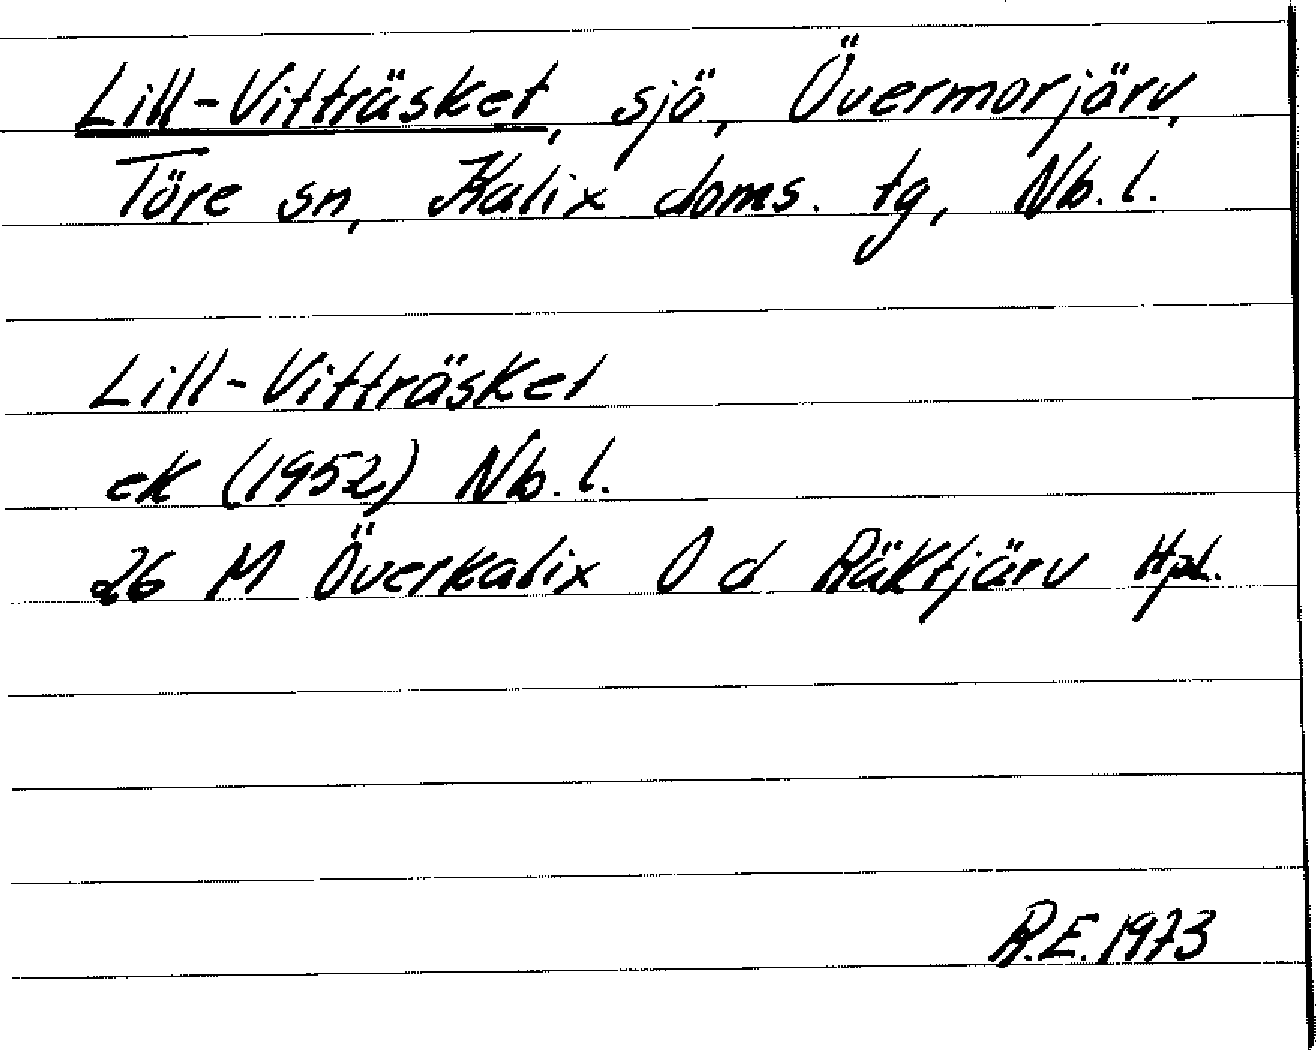 Lill-Vitträsket, sjö, Övermorjärv,
Töre sn, Kalix doms. tg, Nb. l.
Lill-Vitträsket
ek (1952) Nb. l.
26 M Överkalix O d Räktjärv Hpl.
R.E. 1973